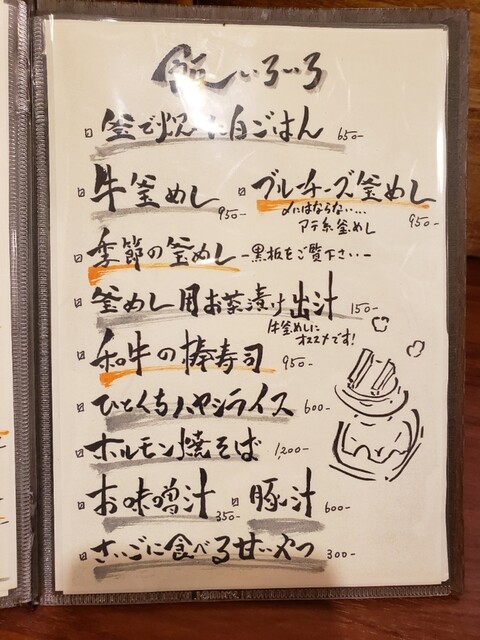 飯いろいろ
釜で炊いた白ごはん 650-
牛釜めし 950-
ブルーチーズ釜めし 950-
〆にはならない…
アテ系釜めし
季節の釜めし -黒板をご覧下さい-
釜めし用お茶漬け出汁 150-
牛釜めしに
オススメです!
和牛の棒寿司 950-
ひとくちハヤシライス 600-
ホルモン焼そば 1,200-
お味噌汁 350-
豚汁 600-
さいごに食べる甘いやつ 300-